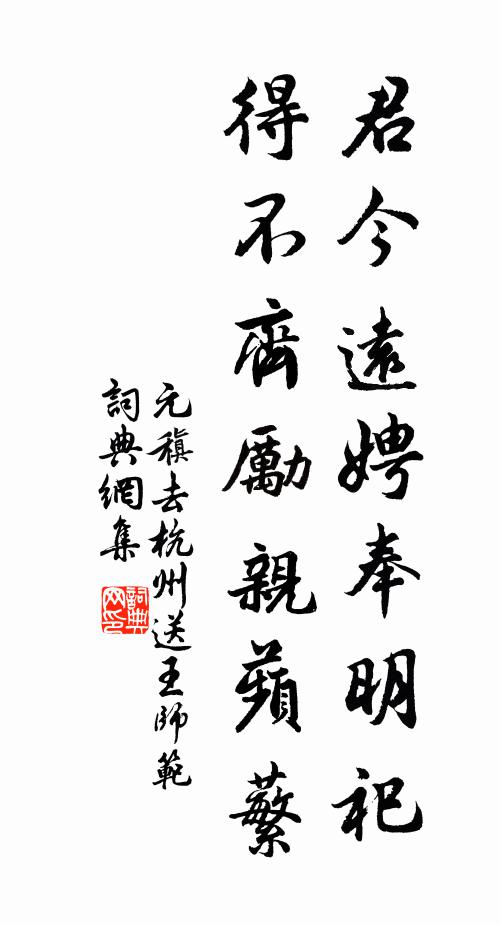 君今遠娉奉明祀
得不齊勵親蘋蘩
元稹去杭州送王師範
詞典網集
詞典网印